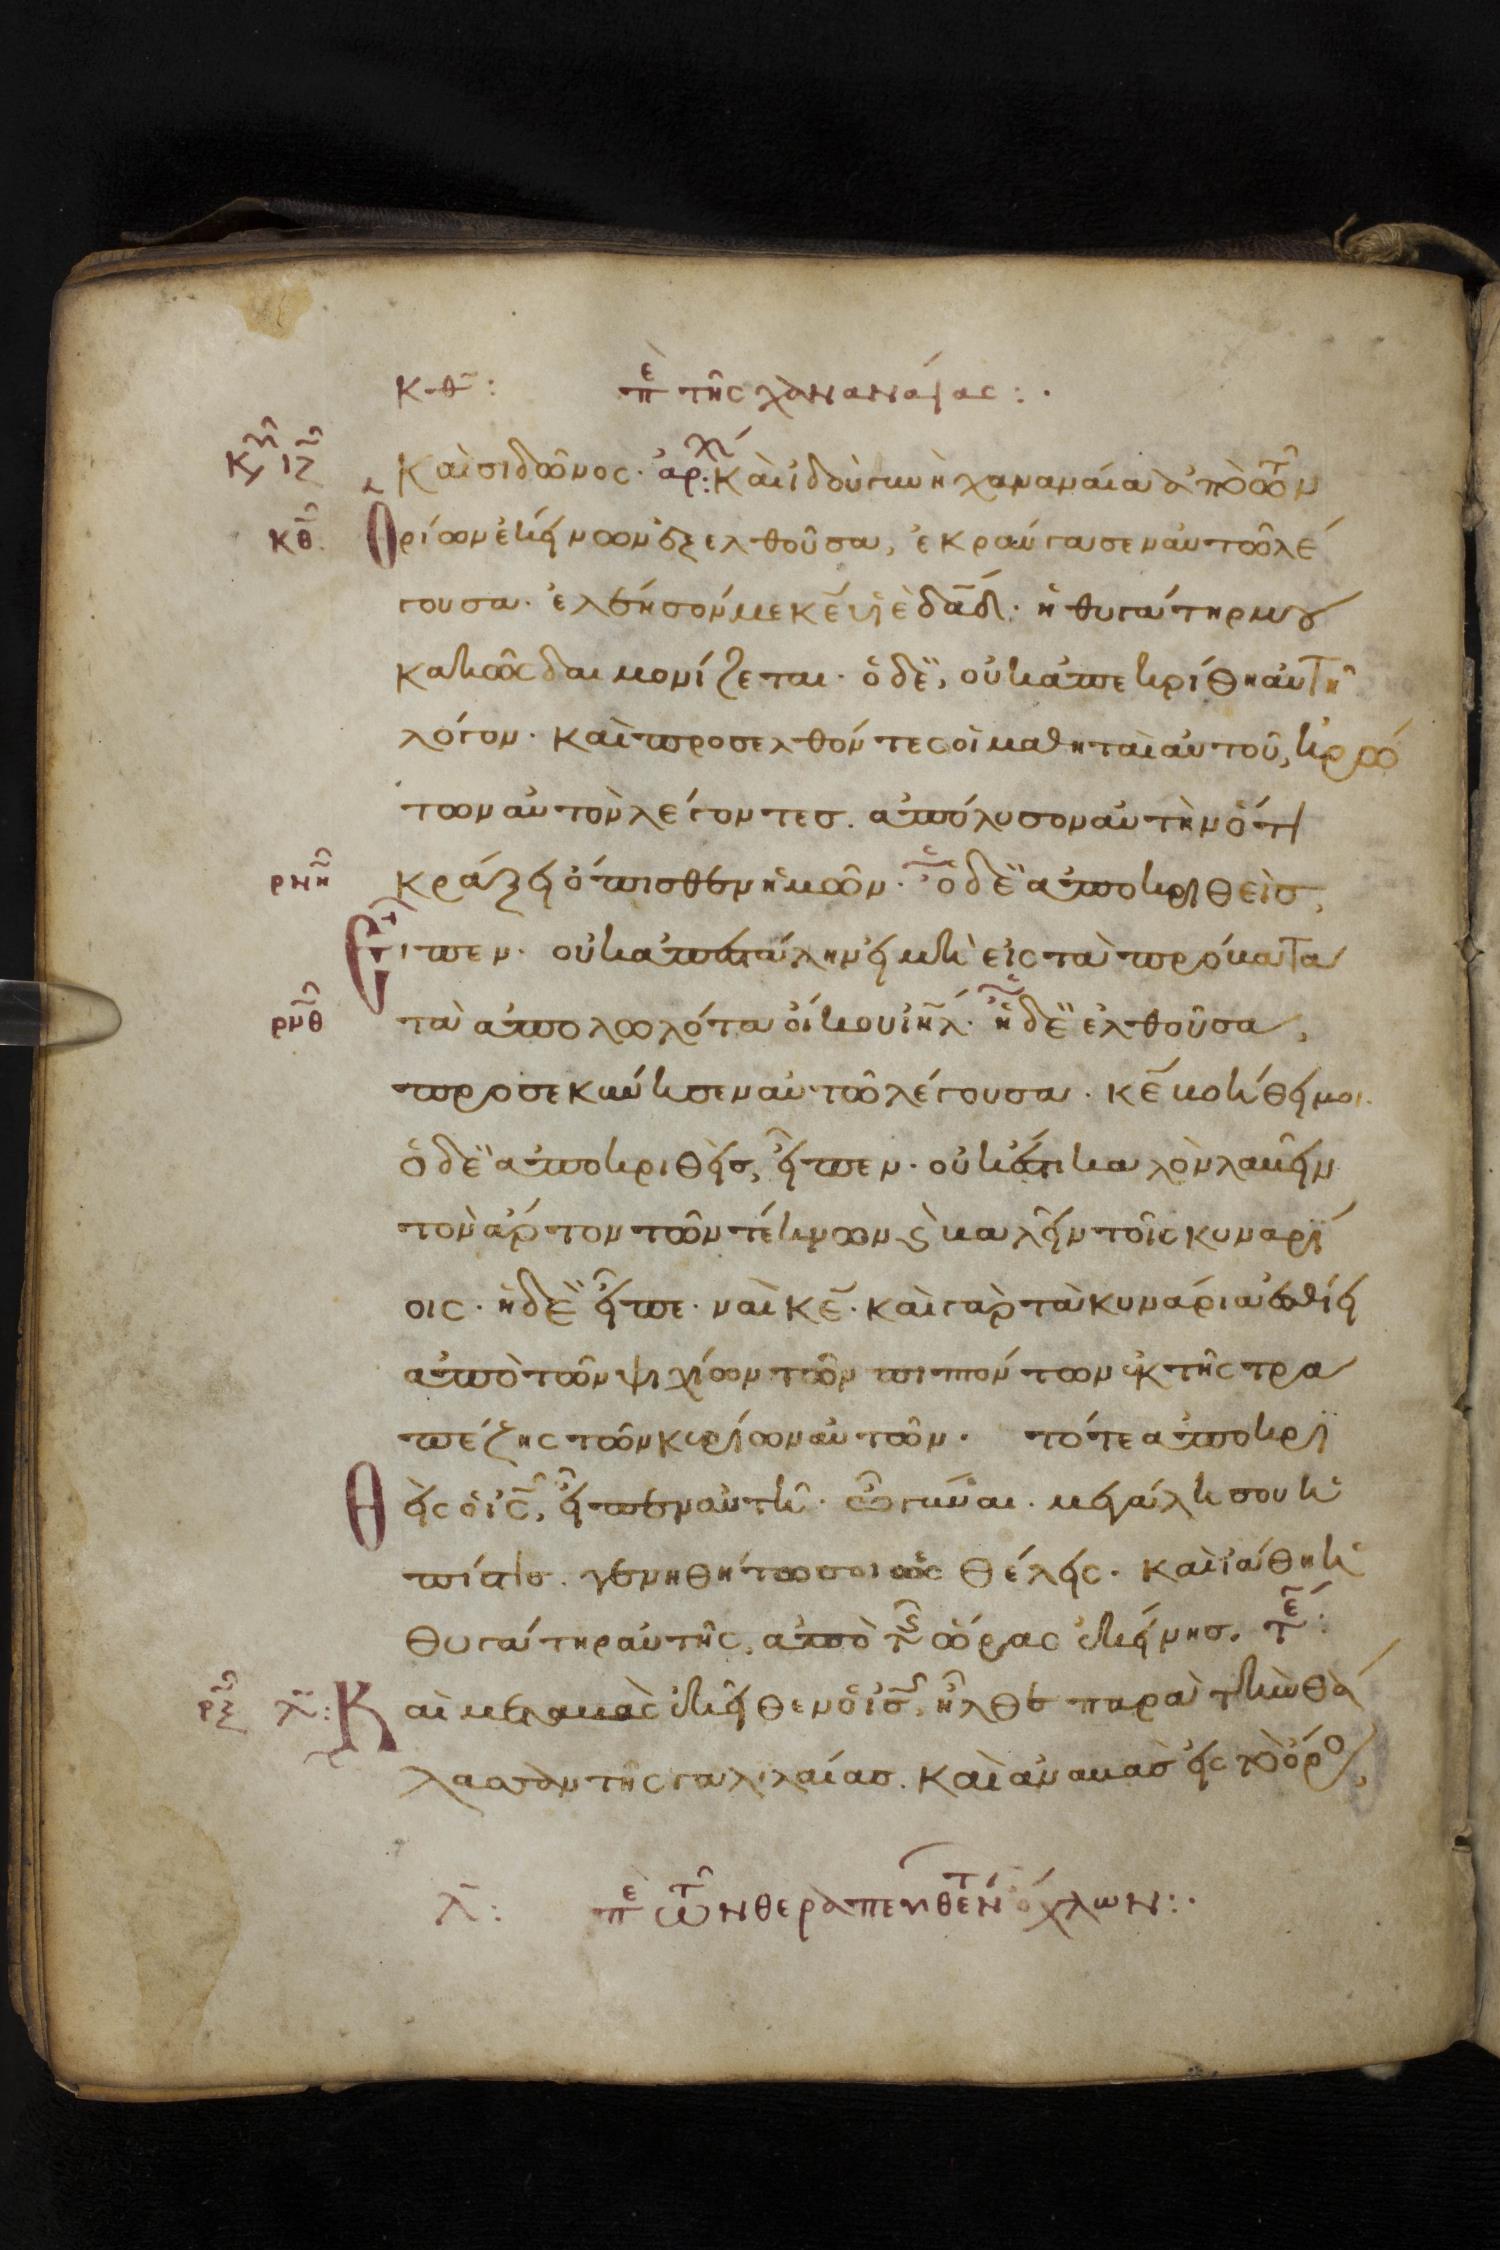 κθ̄: πὲ τῆς χανανάιας:·
κυ ιζ καὶ σιδῶνος· ἀρχ: καὶ ἰδοὺ γυνὴ χαναναία ἀπὸ τῶν
κθ ὁρίων ἐκείνων ἐξελθοῦσα, ἐκραύγασεν αὐτῶ λέ
γουσα· ἐλέησόν με κ̄ε υἱὲ δα̅δ· ἡ θυγάτηρ μου
κακῶς δαιμονίζεται· ὁ δὲ, οὐκ ἀπεκρίθη αὐτῆ
λόγον· καὶ προσελθόντες οἱ μαθηταὶ αὐτοῦ, ἠρώ
των αὐτὸν λέγοντες. ἀπόλυσον αὐτὴν ὅτι
ρμη κράζει ὄπισθεν ἡμῶν· ὁ δὲ ἀποκριθεὶς,
εἶπεν· οὐκ ἀπεστάλην εἰ μὴ εἰς τὰ πρόβατα
ρμθ τὰ ἀπολωλότα οἴκου ἰη̅λ· ἡ δὲ ἐλθοῦσα,
προσεκύνησεν αὐτῶ λέγουσα· κ̄ε βοήθει μοι.
ὁ δὲ ἀποκριθεὶς, εἶπεν· οὐκ ἔστι καλὸν λαβεῖν
τὸν ἄρτον τῶν τέκνων ϗ βαλεῖν τοῖς κυναρί
οις· ἡ δὲ εἶπε· ναὶ κ̄ε· καὶ γὰρ τὰ κυνάρια ἐσθίει
ἀπὸ τῶν ψιχίων τῶν πιπτόντων ἐκ τῆς τρα
πέζης τῶν κυρίων αὐτῶν· τότε ἀποκρι
θεὶς ὁ ι̅ς, εἶπεν αὐτῆ· ὦ γύναι· μεγάλη σου ἡ
πίστις. γενηθήτω σοι ὡς θέλεις· καὶ ἰάθη ἡ
θυγάτηρ αὐτῆς, ἀπὸ τῆς ὥρας ἐκείνης. τε:
ρξ λ: καὶ μεταβὰς ἐκεῖθεν ὁ ι̅ς, ἦλθε παρὰ τὴν θά
λασσαν τῆς γαλιλαίας. καὶ ἀναβὰς εἰς τὸ ὄρος,
λ̄: πὲ τῶν θεραπευθέντ ὄχλων:·